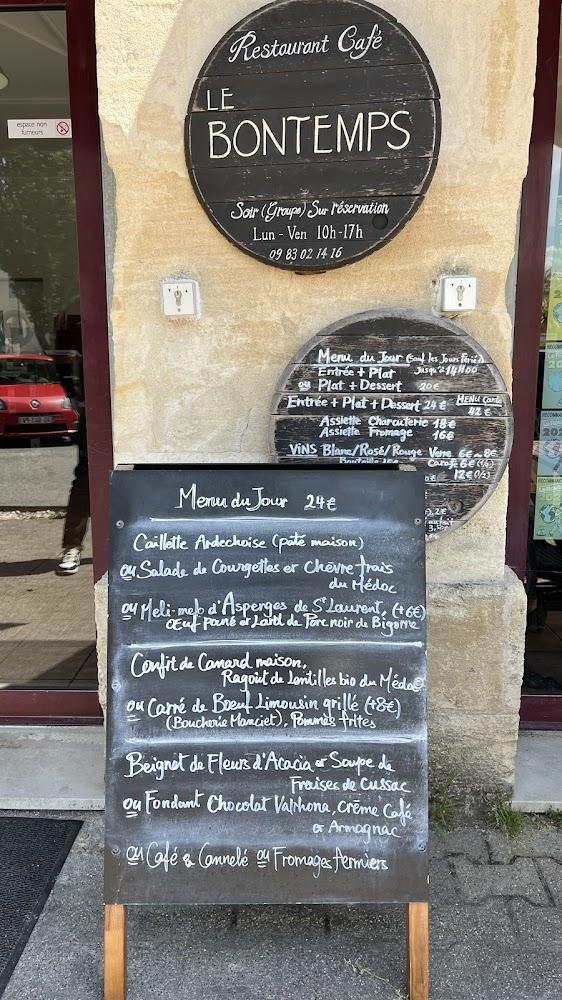 espace non
fumeurs
Restaurant Café
LE
BONTEMPS
Soir (Groupe) Sur réservation
Lun - Ven 10h-17h
09 83 02 14 16
Menu du Jour (Sauf les Jours Fériés)
Entrée + Plat Jusqu'à 14H00
ou Plat + Dessert 20€
Entrée + Plat + Dessert 24€ MENU Carte
42€
Assiette Charcuterie 18€
Assiette Fromage 16€
ViNS Blanc/Rosé/Rouge Verre 6€~8€
Carafe 6€ (¼)
12€ (½)
Menu du Jour 24€
Caillette Ardechoise (pâté maison)
ou Salade de Courgettes et Chèvre frais
du Médoc
ou Meli-melo d'Asperges de St Laurent, (+6€)
Œuf pané et Lard de Porc noir de Bigorre
Confit de Canard maison,
Ragout de Lentilles bio du Médoc
ou Carré de Bœuf Limousin grillé (+8€)
(Boucherie Manciet), Pommes frites
Beignet de Fleurs d'Acacia et Soupe de
Fraises de Cussac
ou Fondant Chocolat Valrhona, Crème Café
et Armagnac
ou Café & Cannelé ou Fromages fermiers